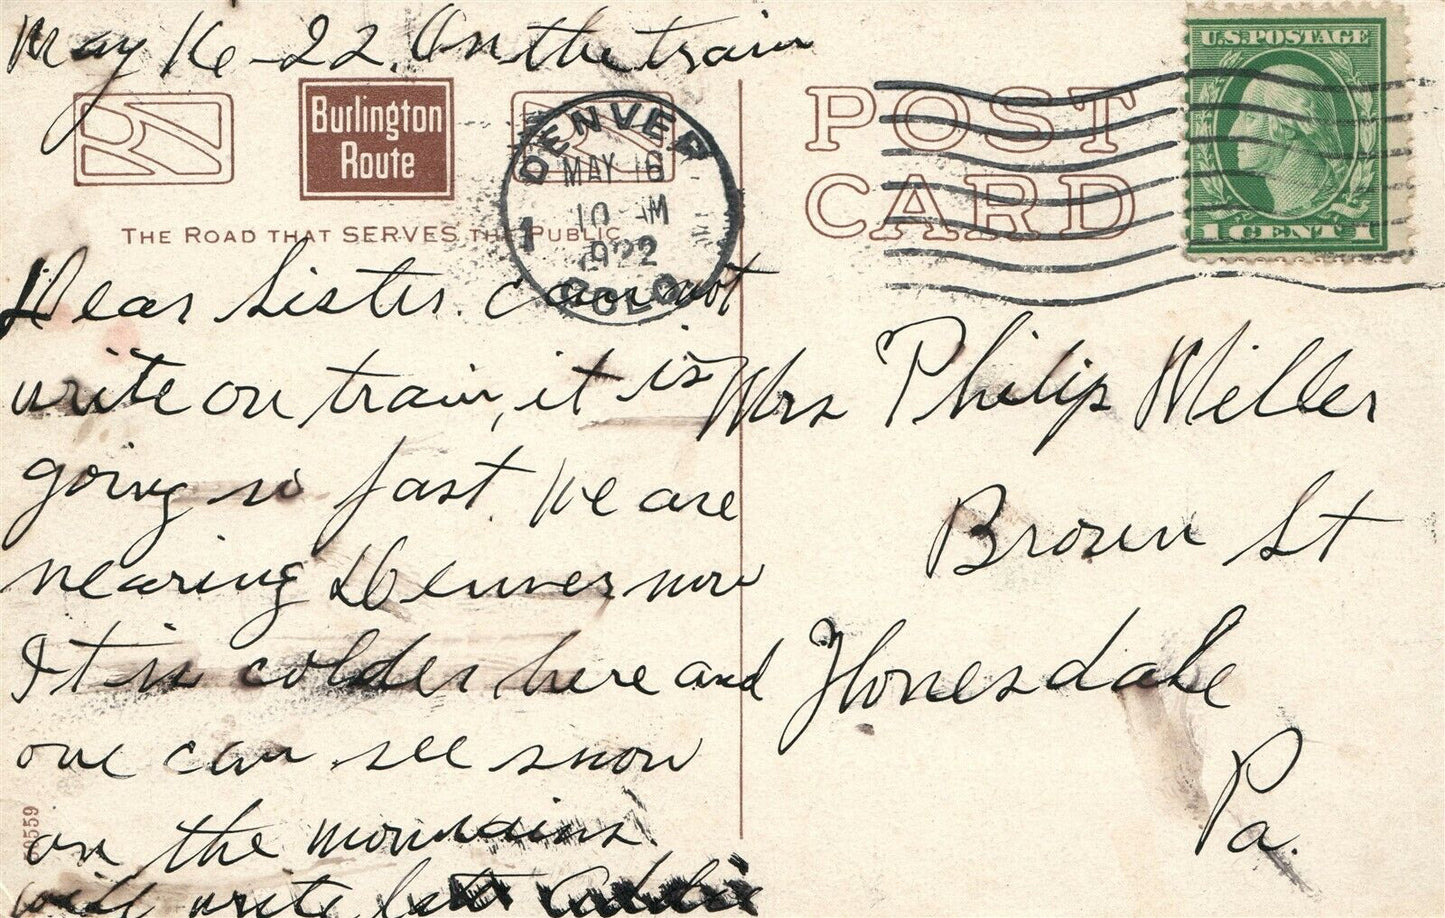 May 16-22. On the train
Burlington
Route
THE ROAD THAT SERVES THE PUBLIC
DENVER
MAY 16
10 AM
1
1922
COLO
POST
CARD
U.S. POSTAGE
1 CENT 1
Dear Sister. can not
write on train, it is
going so fast. We are
nearing Denver now
It is colder here and
one can see snow
on the mountains.
will write
Mrs Philip Miller
Brown St
Honesdale
Pa.